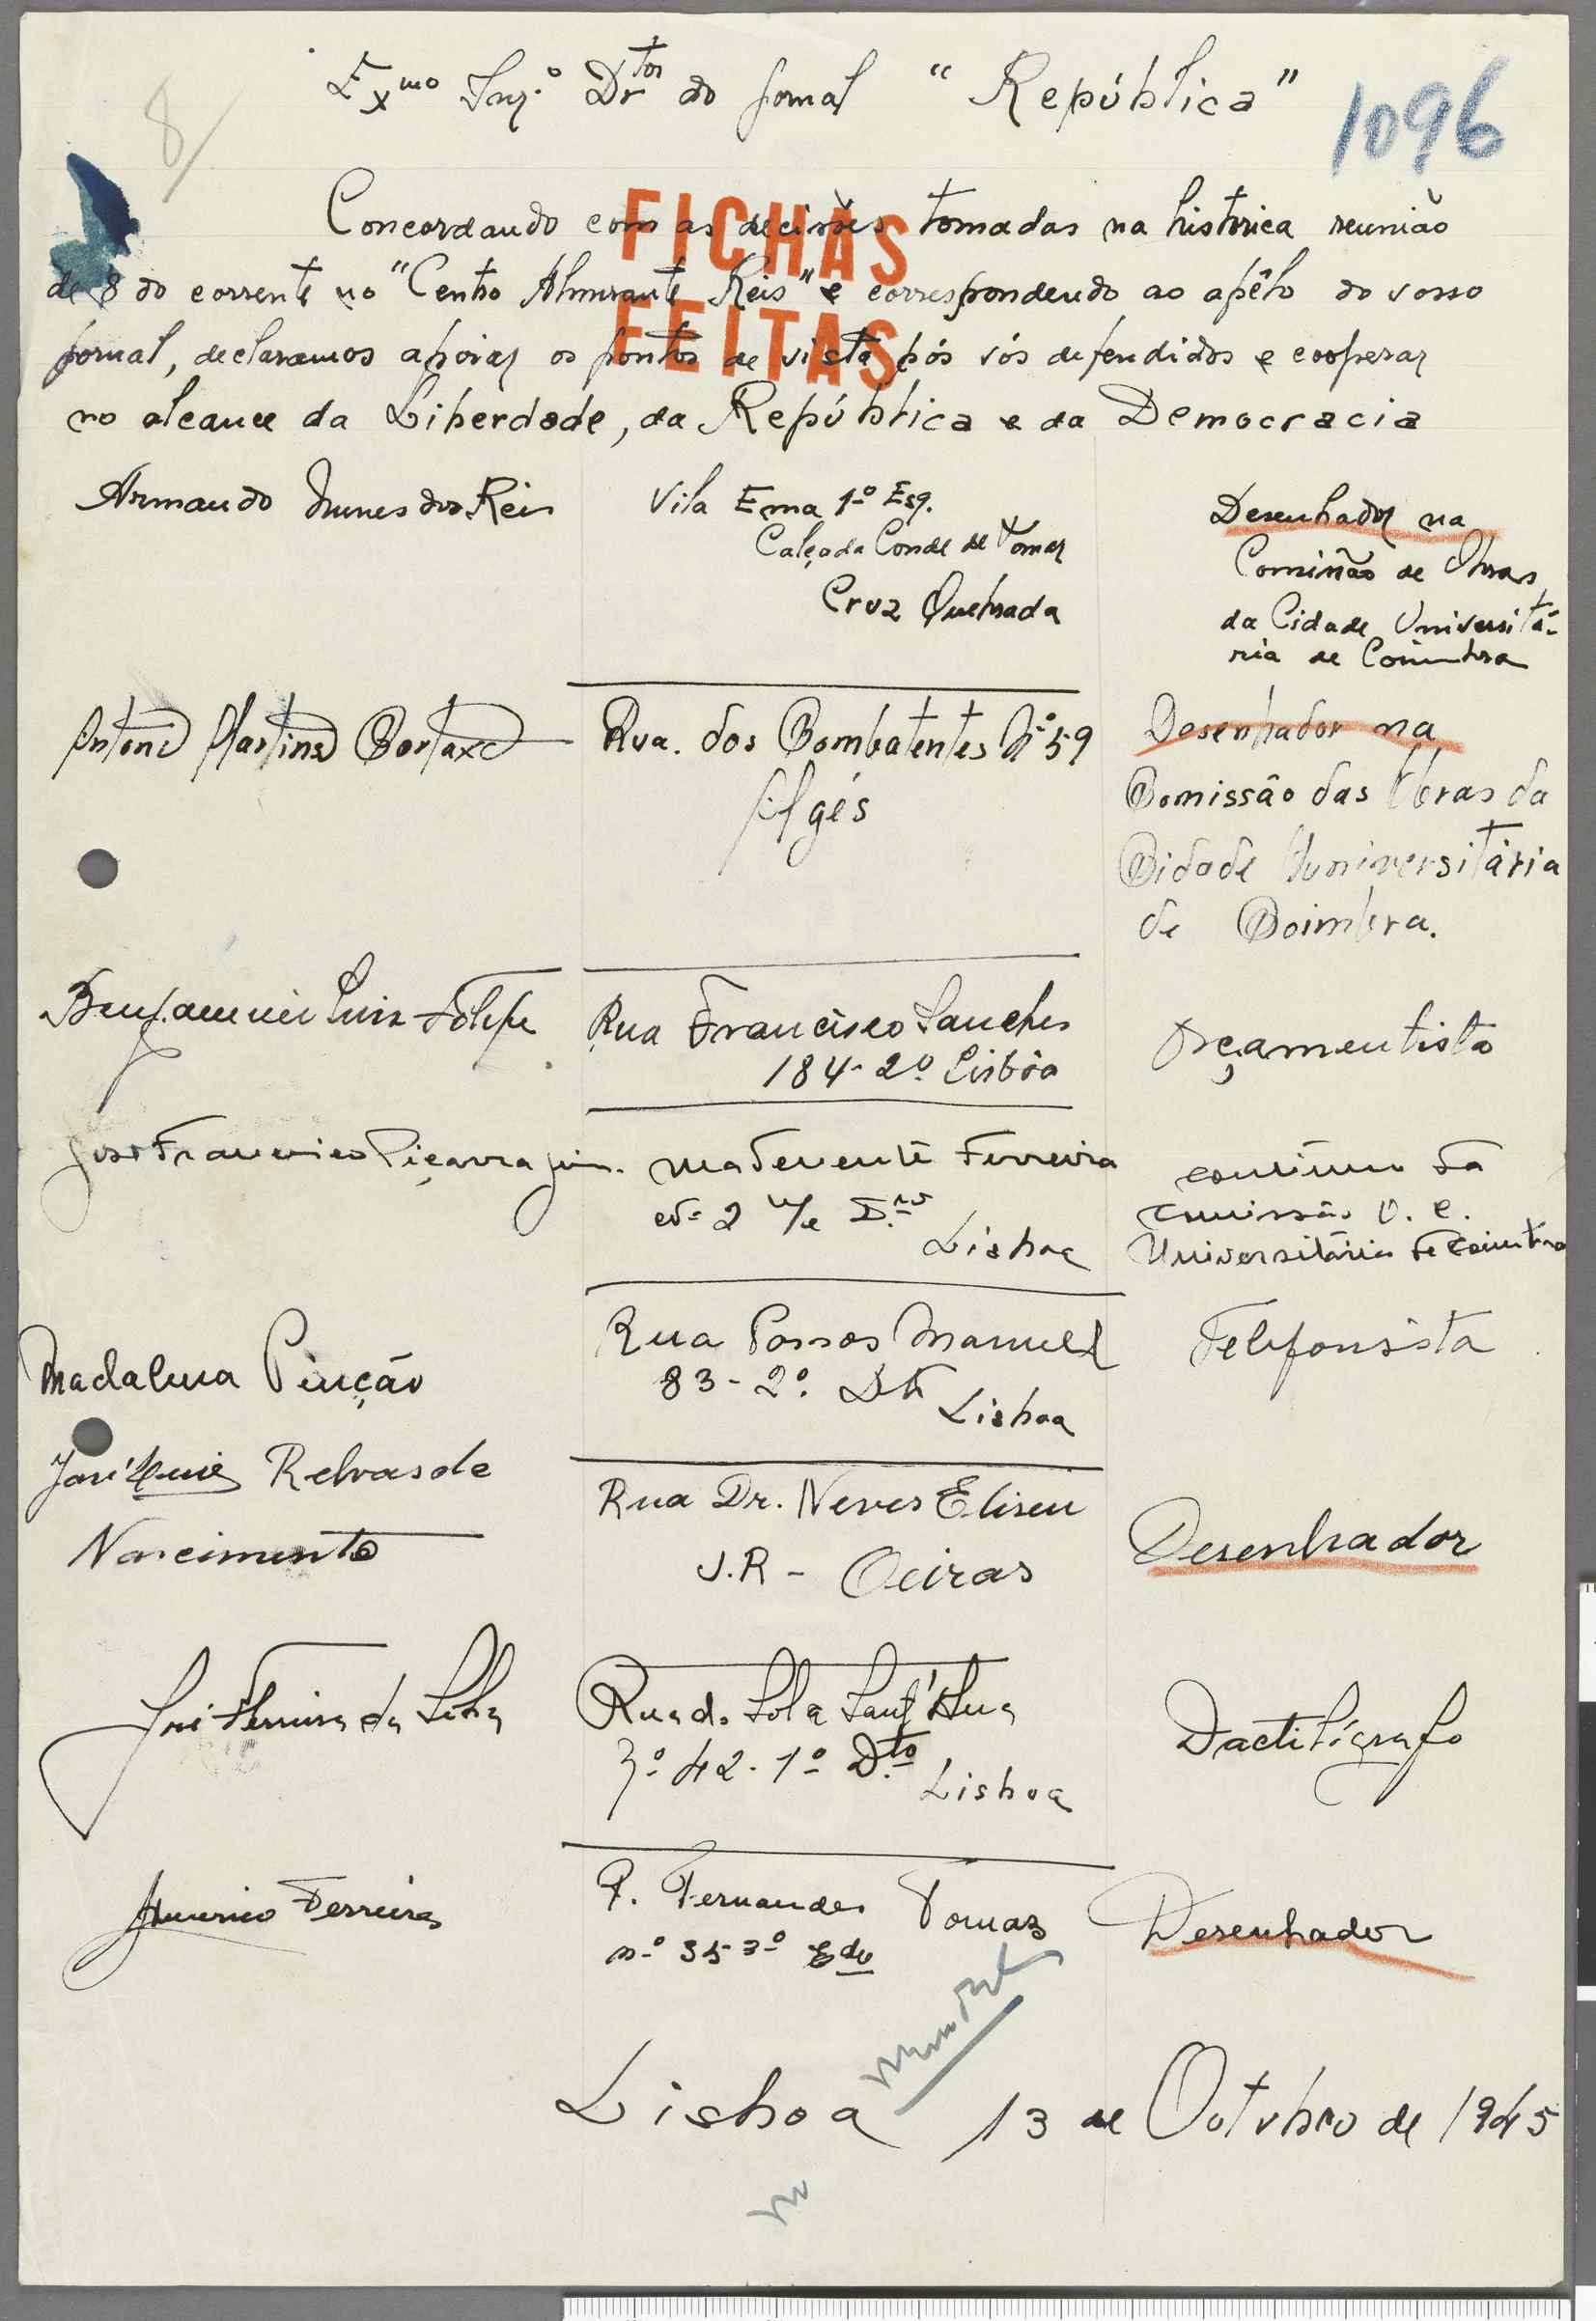 Exmo Snr.o Dr.tor do Jornal "República"
8
1096
Concordando com as decisões tomadas na historica reunião
de 8 do corrente no "Centro Almirante Reis" e correspondendo ao apêlo do vosso
jornal, declaramos apoiar os pontos de vista pós vós defendidos e cooperar
no alcance da Liberdade, da República e da Democracia
FICHAS
FEITAS
Armando Nunes dos Reis
Vila Ema 1º Esq.
Calçada Conde de Tomar
Cruz Quebrada
Desenhador na
Comissão de Obras
da Cidade Universitá-
ria de Coimbra
António Martins Cartaxo
Rua. dos Combatentes Nº 59
Algés
Desenhador na
Comissão das Obras da
Cidade Universitária
de Coimbra.
Benjamim Luis
Rua Francisco Sanches
184-2º. Lisbôa
Orçamentista
José Francisco Piçarra
Rua Tenente Ferreira
2 Lisboa
continuo da
Comissão O. C.
Universitária de Coimbra
Madalena Pinção
Rua Passos Manuel
83-2º. Dto Lisboa
Telefonista
José Luis Relvas de
Nascimento
Rua Dr. Neves Eliseu
J.R - Oeiras
Desenhador
José Ferreira da Silva
Rua do Sol a Sant'Ana
42-1º Dto Lisboa
Dactilógrafo
Américo Ferreira
R. Fernandes Tomaz
nº 35 3º Edo
Desenhador
Lisboa 13 de Outubro de 1945